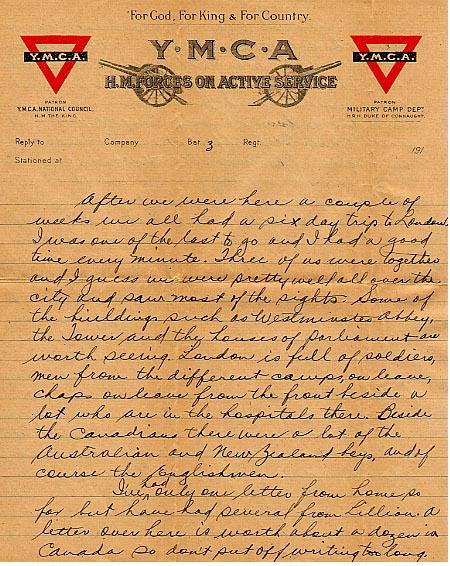 "For God, For King & For Country.
Y·M·C·A
H.M. FORCES ON ACTIVE SERVICE
Y.M.C.A.
PATRON
Y.M.C.A. NATIONAL COUNCIL.
H.M. THE KING.
Y.M.C.A.
PATRON
MILITARY CAMP DEPT
H.R.H. DUKE OF CONNAUGHT.
Reply to Company Bat. 3 Regt. 191
Stationed at
After we were here a couple of
weeks we all had a six day trip to London.
I was one of the last to go and I had a good
time every minute. Three of us were together
and I guess we were pretty well all over the
city and saw most of the sights. Some of
the buildings such as Westminster Abbey,
the Tower and the houses of Parliament are
worth seeing. London is full of soldiers,
men from the different camps, on leave,
chaps on leave from the front beside a
lot who are in the hospitals there. Beside
the Canadians there were a lot of the
Australian and New Zealand boys, and of
course the Englishmen.
I've had only one letter from home so
far but have had several from Lillian. A
letter over here is worth about a dozen in
Canada so don't put off writing too long.